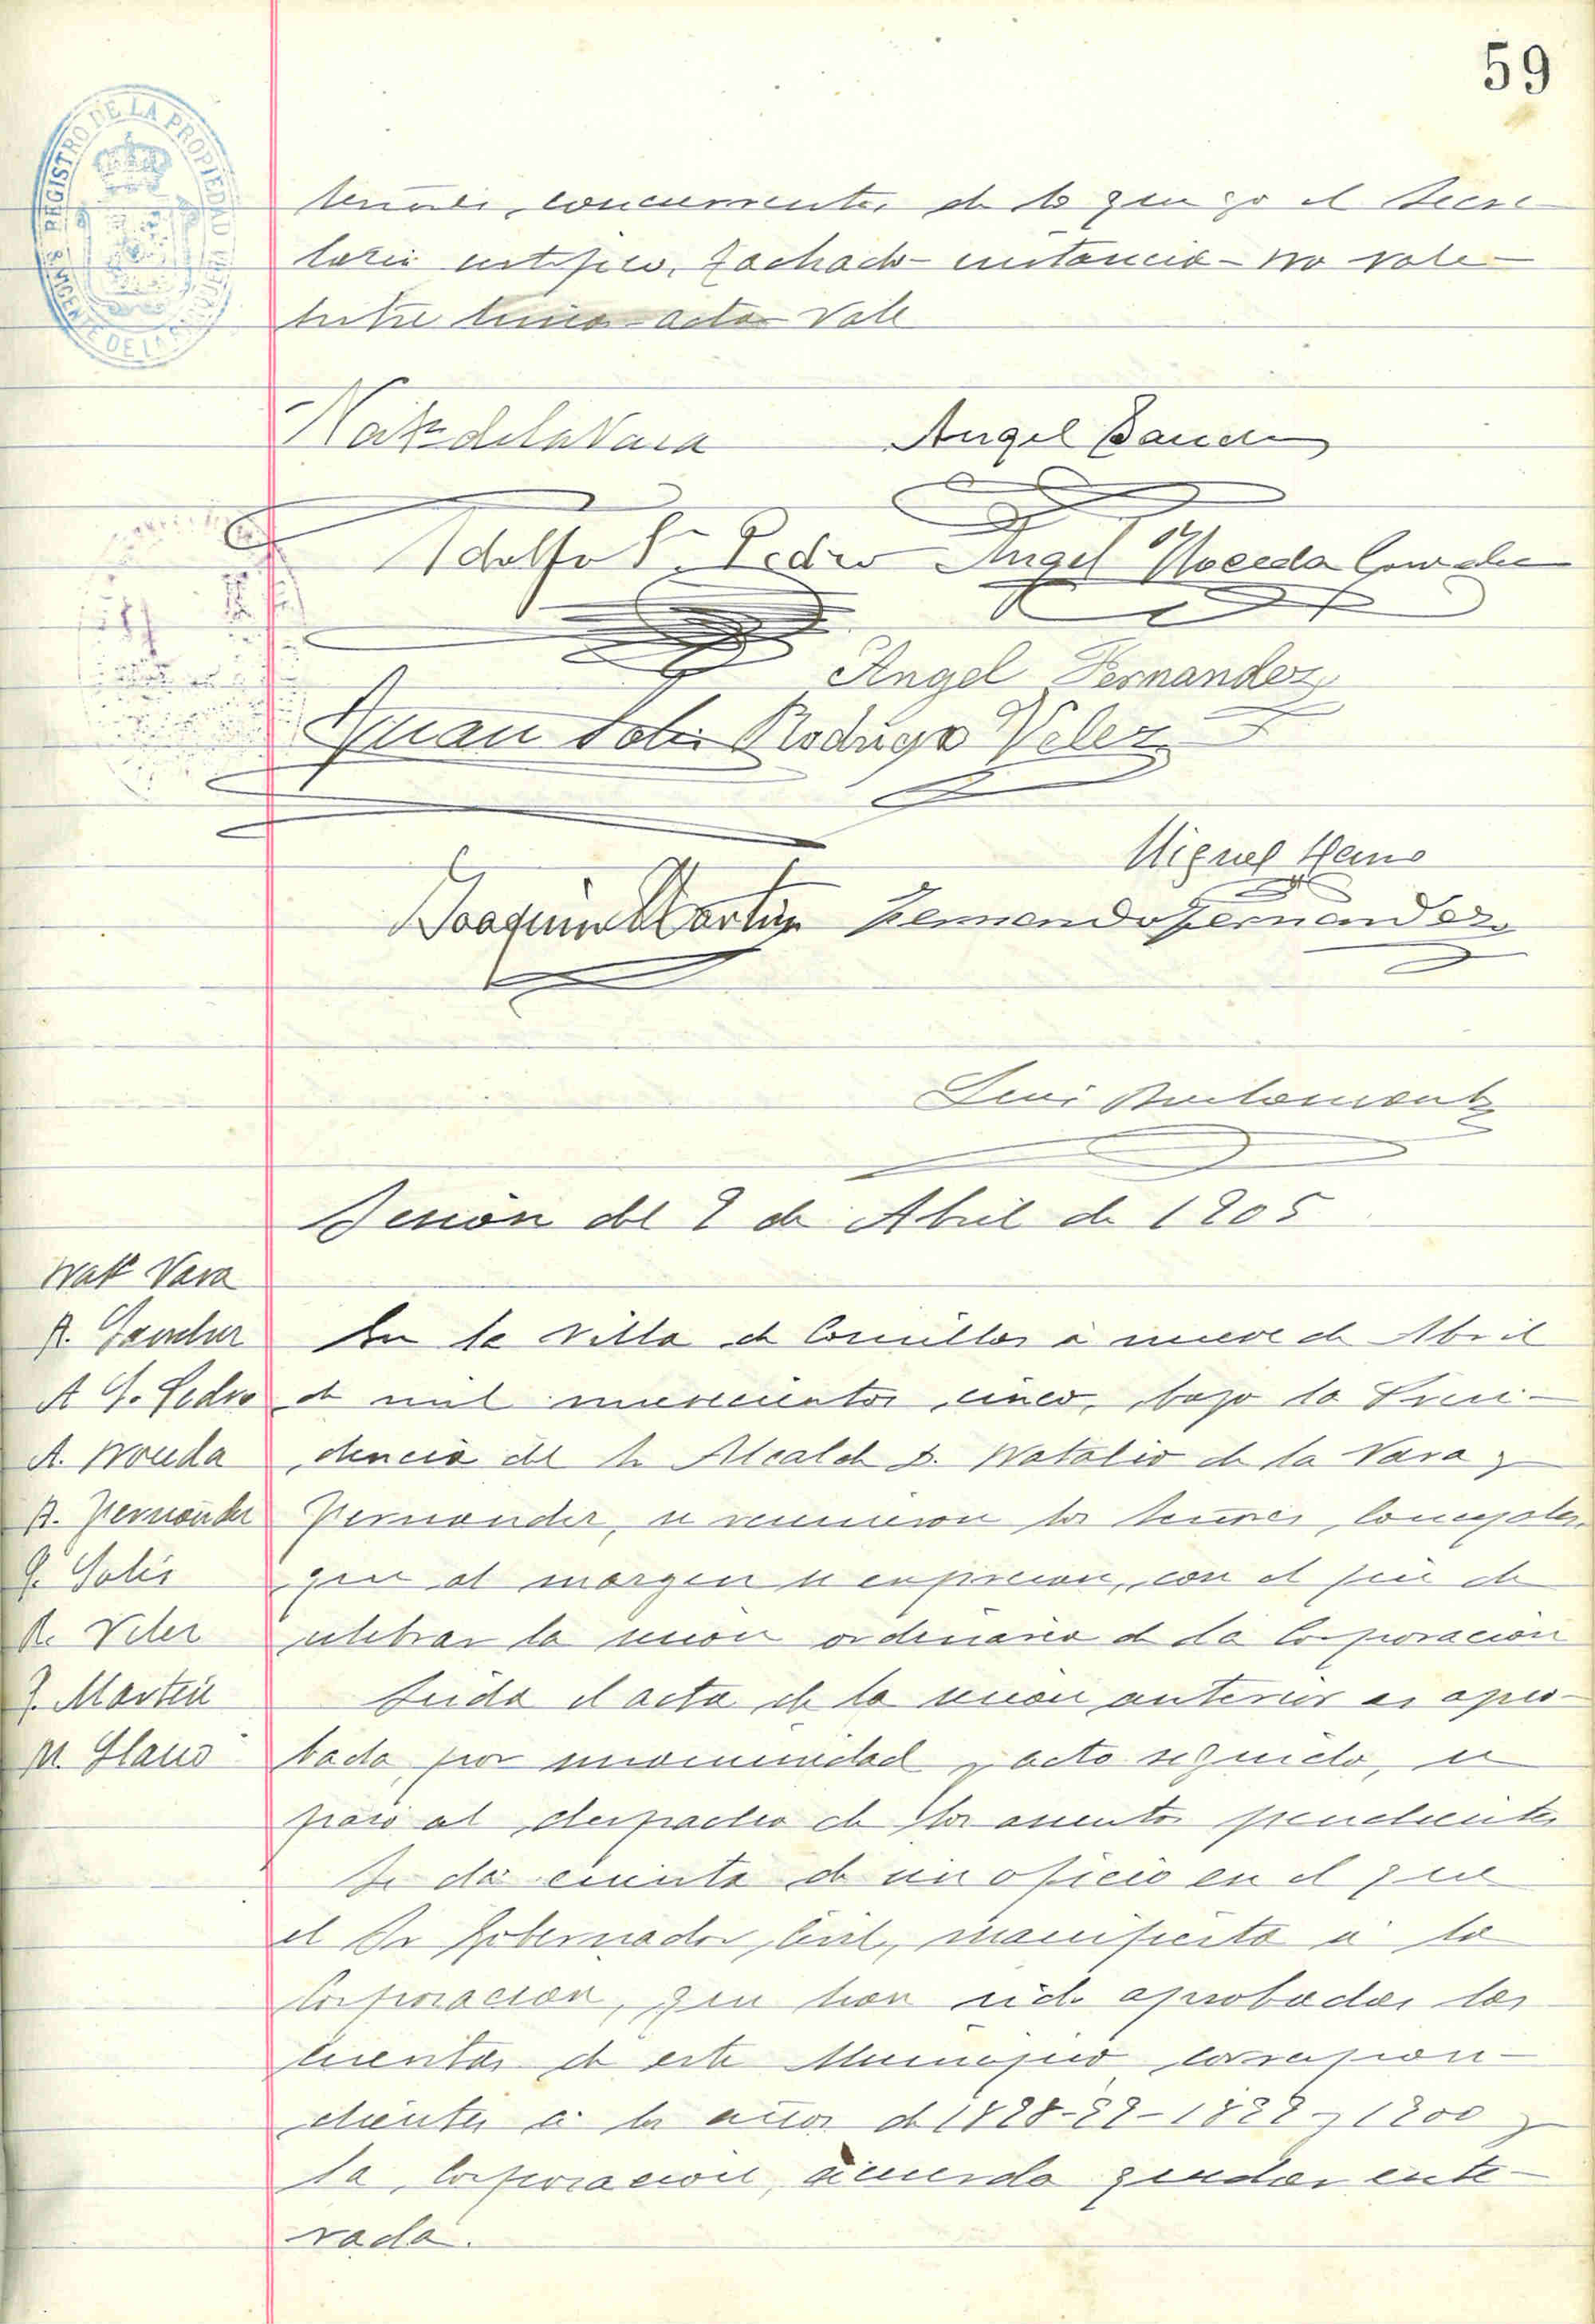 59
REGISTRO DE LA PROPIEDAD
S. VICENTE DE LA BARQUERA
señores concurrentes de lo que yo el Secre-
tario certifico. Tachado - instancia - no vale -
Entre lineas - acta - Vale
Nat.º de la Vara
Angel Sanchez
Adolfo S. Pedro
Angel Noceda Gonzalez
Angel Fernandez
Juan Solis
Rodrigo Velez
Miguel Llano
Joaquin Martin
Fernando Fernandez
Sesión del 9 de Abril de 1905
Nat.º Vara
A. Sanchez
A. S. Pedro
A. Noceda
A. Fernandez
J. Solís
R. Velez
J. Martin
M. Llano
En la Villa de Comillas á nueve de Abril
de mil novecientos cinco, bajo la Presi-
dencia del Sr Alcalde D. Natalio de la Vara y
Fernandez, se reunieron los Señores Concejales
que al margen se expresan, con el fin de
celebrar la sesión ordinaria de la Corporación
Leida el acta de la sesion anterior es apro-
bada por unanimidad y acto seguido, se
pasó al despacho de los asuntos pendientes
Se dá cuenta de un oficio en el que
el Sr Gobernador Civil, manifiesta á la
Corporacion, que han sido aprobadas las
cuentas de este Municipio correspon-
dientes á los años de 1898-99-1899 y 1900 y
la Corporacion, acuerda quedar ente-
rada.